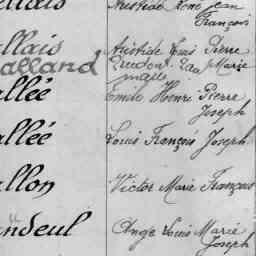 llais Aristide René Jean
François
llais Aristide Louis Pierre
alland Marie
llée Emile Henri Pierre
Joseph
llée Louis François Joseph
llon Victor Marie François
ndeul Ange Louis Marie
Joseph